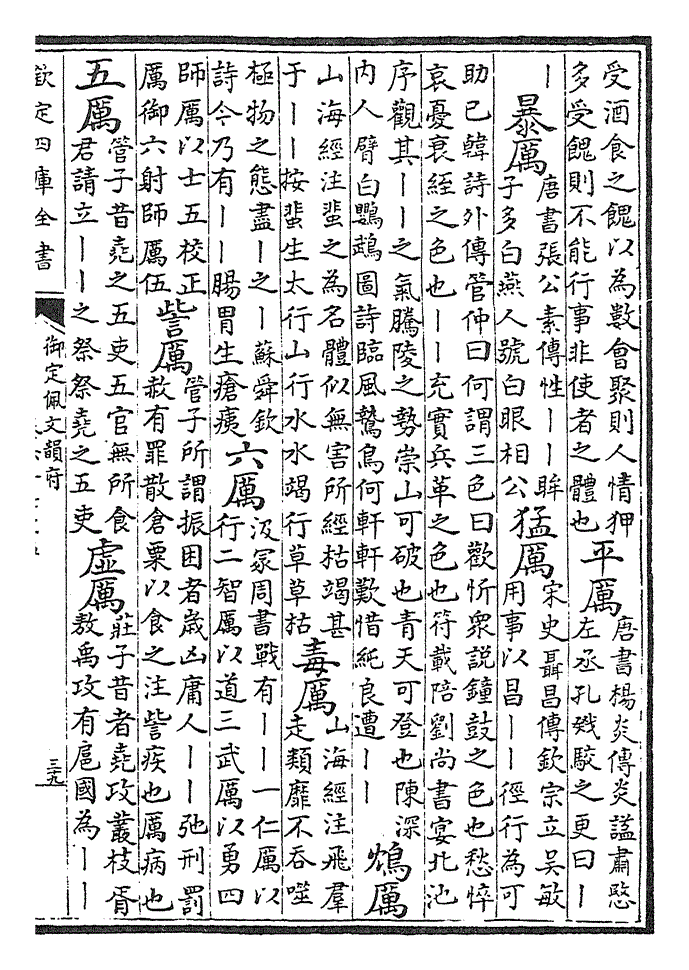 受酒食之餽以為數會聚則人情狎
多受餽則不能行事非使者之體也
平厲
唐書楊炎傳炎諡肅愍
左丞孔戣駮之更曰丨
丨
暴厲
唐書張公素傳性丨丨眸
子多白燕人號白眼相公
猛厲
宋史聶昌傳欽宗立吳敏
用事以昌丨丨徑行為可
助已韓詩外傳管仲曰何謂三色曰歡忻衆說鐘鼓之色也愁悴
哀憂衰絰之色也丨丨充實兵革之色也符載陪劉尚書宴北池
序觀其丨丨之氣騰陵之勢崇山可破也青天可登也陳深
内人臂白鸚鵡圖詩臨風鷙鳥何軒軒歎惜純良遭丨丨
鴆厲
山海經注蜚之為名體似無害所經枯竭甚
于丨丨按蜚生太行山行水水竭行草草枯
毒厲
山海經注飛羣
走類靡不吞噬
極物之態盡丨之丨蘇舜欽
詩今乃有丨丨腸胃生瘡痍
六厲
汲冢周書戰有丨丨一仁厲以
行二智厲以道三武厲以勇四
師厲以士五校正
厲御六射師厲伍
訾厲
管子所謂振困者歲凶庸人丨丨弛刑罰
赦有罪散倉粟以食之注訾疾也厲病也
五厲
管子昔堯之五吏五官無所食
君請立丨丨之祭祭堯之五吏
虛厲
莊子昔者堯攻叢枝胥
敖禹攻有扈國為丨丨
欽定四庫全書
御定佩文韻府
三九